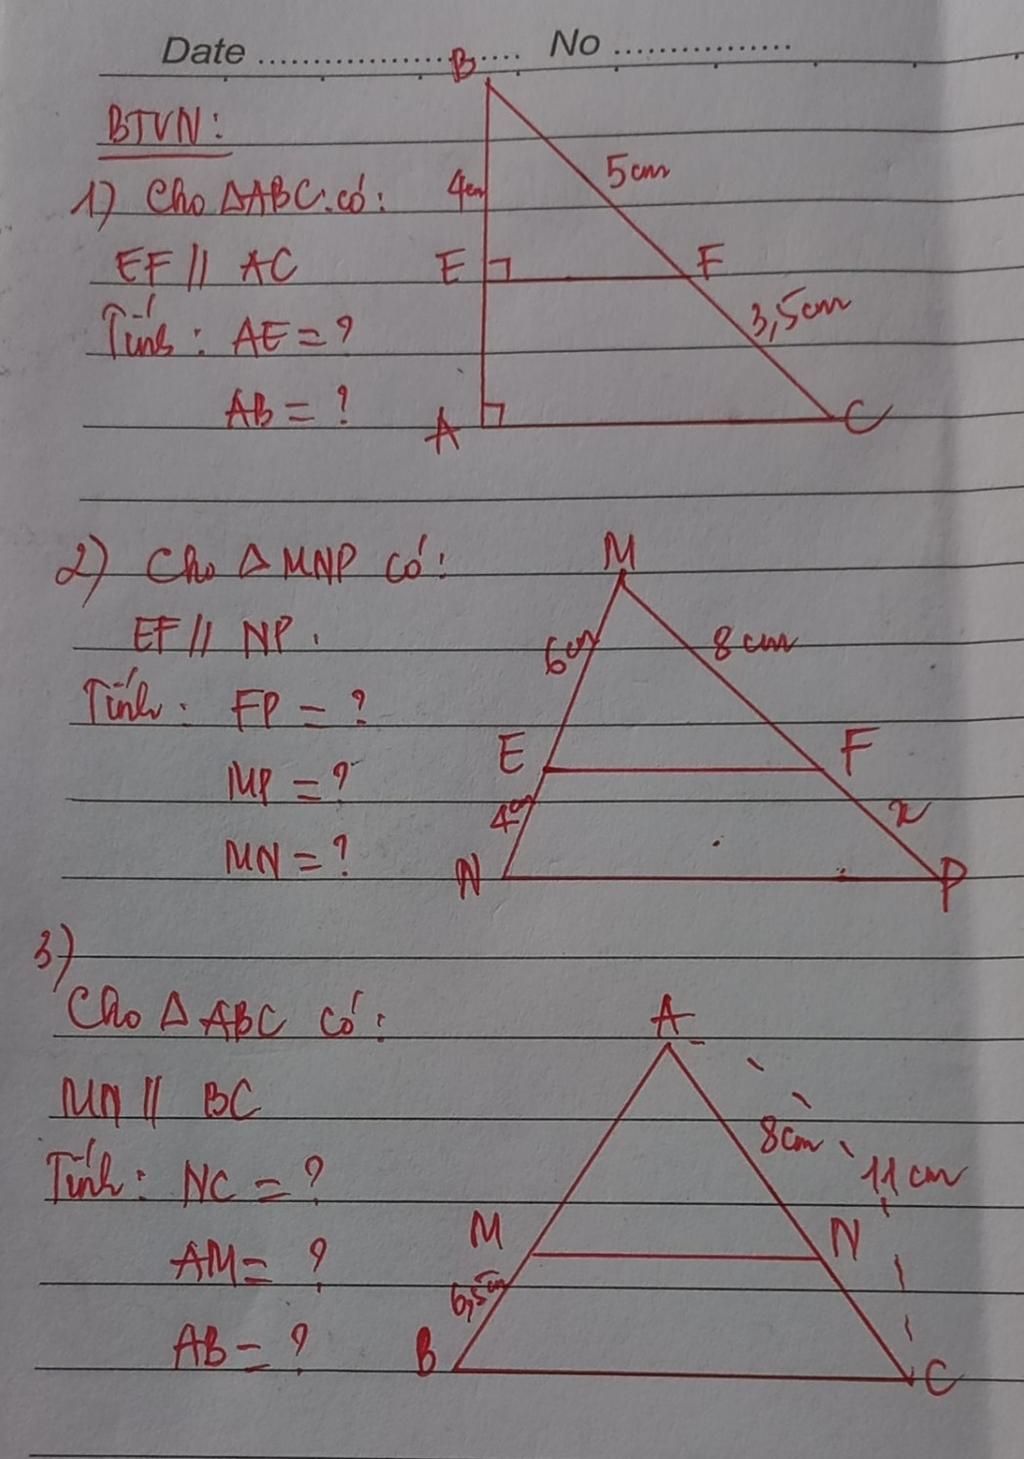 Date .................... No ................
BTVN:
1) Cho ΔABC có:
EF // AC
Tính: AE = ?
AB = ?
B
4cm
5cm
E
F
3,5cm
A
C
2) Cho Δ MNP có:
EF // NP.
Tính: FP = ?
MP = ?
MN = ?
M
6cm
8cm
E
F
4cm
x
N
P
3)
Cho Δ ABC có:
MN // BC
Tính: NC = ?
AM = ?
AB = ?
A
8cm
11cm
M
N
6,5cm
B
C